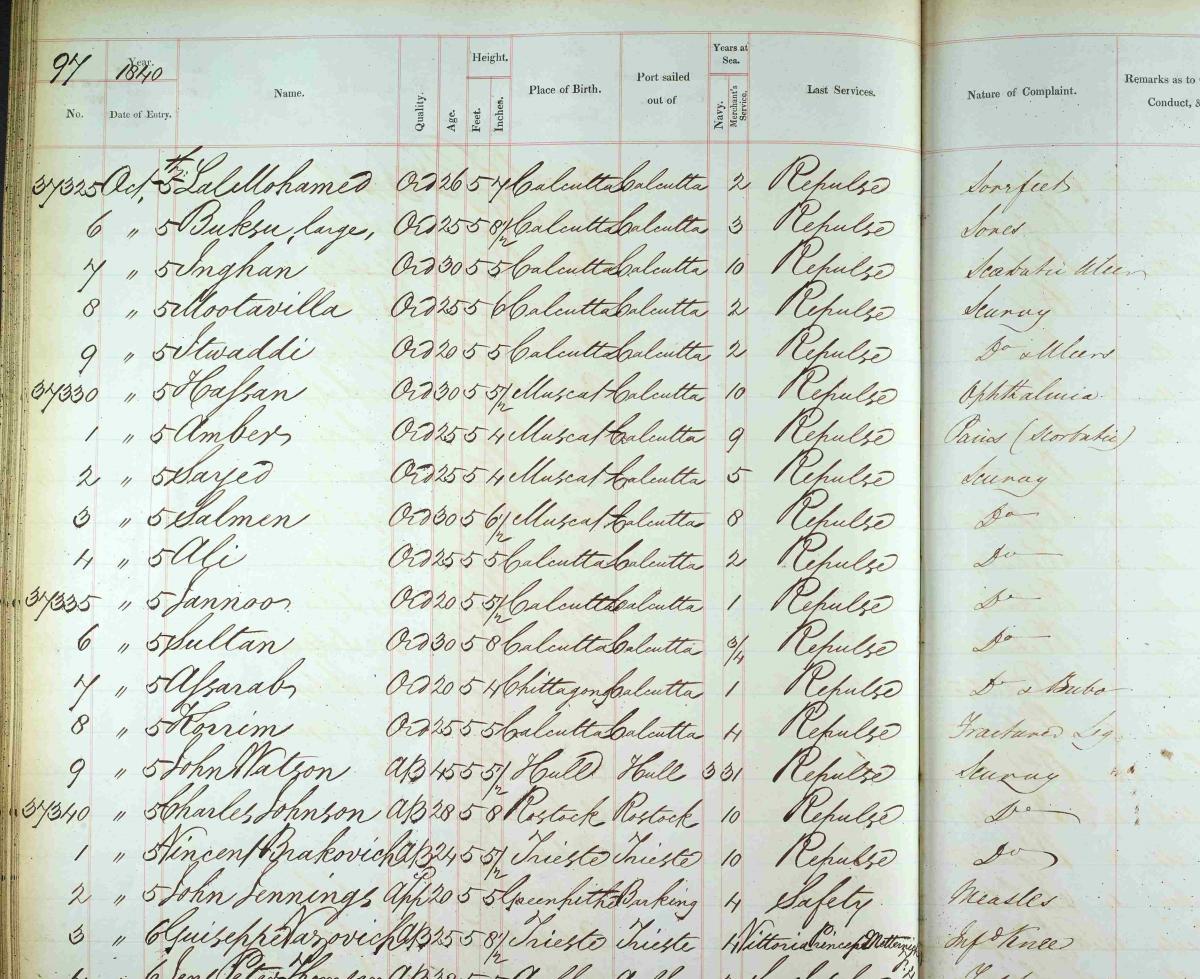 97 Year. 1840 Height. Years at Sea.
No. Date of Entry. Name. Quality. Age. Feet. Inches. Place of Birth. Port sailed out of Navy. Merchant's Service. Last Services. Nature of Complaint. Remarks as to Conduct, &
37325 Oct, 5 Lal Mohamed Ord 26 5 7 Calcutta Calcutta 2 Repulse Sorefeet
6 " 5 Buksu, large, Ord 25 5 8 1/2 Calcutta Calcutta 3 Repulse Sores
7 " 5 Inghan Ord 30 5 5 Calcutta Calcutta 10 Repulse Scorbutic Ulcer
8 " 5 Mootavilla Ord 25 5 6 Calcutta Calcutta 2 Repulse Scurvy
9 " 5 Itwaddi Ord 20 5 5 Calcutta Calcutta 2 Repulse Do & Ulcers
37330 " 5 Hassan Ord 30 5 5 1/2 Muscat Calcutta 10 Repulse Ophthalmia
1 " 5 Amber Ord 25 5 4 Muscat Calcutta 9 Repulse Pains (Scorbutic)
2 " 5 Sayed Ord 25 5 4 Muscat Calcutta 5 Repulse Scurvy
3 " 5 Salmen Ord 30 5 6 1/2 Muscat Calcutta 8 Repulse Do
4 " 5 Ali Ord 25 5 5 Calcutta Calcutta 2 Repulse Do
37335 " 5 Jannoo Ord 20 5 5 1/2 Calcutta Calcutta 1 Repulse Do
6 " 5 Sultan Ord 30 5 8 Calcutta Calcutta 3/4 Repulse Do
7 " 5 Assarab Ord 20 5 4 Chittagong Calcutta 1 Repulse Do & Bubo
8 " 5 Korrim Ord 25 5 5 Calcutta Calcutta 4 Repulse Fractured Leg
9 " 5 John Watson AB 45 5 5 1/2 Hull Hull 3 31 Repulse Scurvy
37340 " 5 Charles Johnson AB 28 5 8 Rostock Rostock 10 Repulse Do
1 " 5 Vincent Brakovich AB 24 5 5 1/2 Trieste Trieste 10 Repulse Do
2 " 5 John Jennings App 20 5 5 Greenhithe Barking 4 Safety Measles
3 " 6 Guiseppe AB 25 5 8 1/2 Trieste Trieste 4 Vittoria Infd Knee